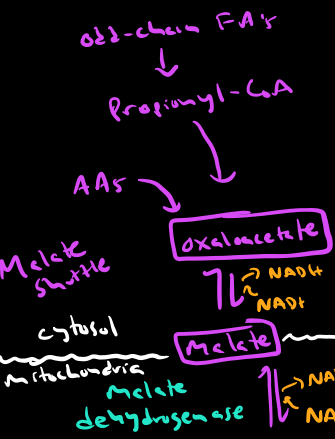 odd-chain FA's
Propionyl-CoA
AAs
oxaloacetate
Malate
shuttle
NADH
NAD+
cytosol
Malate
mitochondria
malate
dehydrogenase